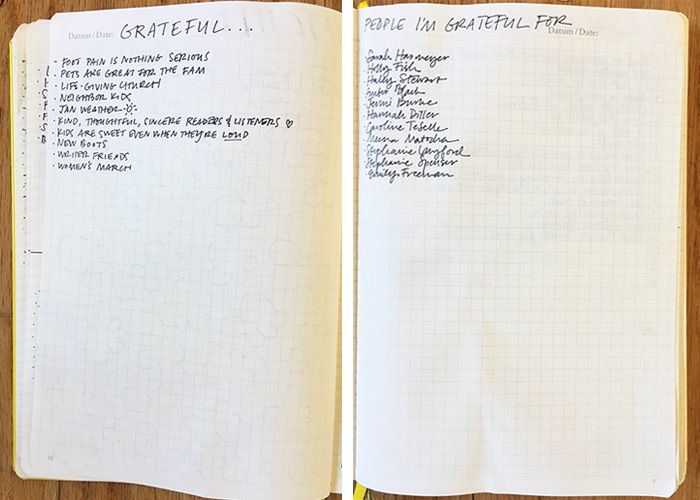 Datum / Date: GRATEFUL...
- FOOT PAIN IS NOTHING SERIOUS
- PETS ARE GREAT FOR THE FAM
- LIFE-GIVING CHURCH
- NEIGHBOR KIDS
- JAN WEATHER
- KIND, THOUGHTFUL, SINCERE READERS & LISTENERS ♡
- KIDS ARE SWEET EVEN WHEN THEY'RE LOUD
- NEW BOOTS
- WRITER FRIENDS
- WOMEN'S MARCH
PEOPLE I'M GRATEFUL FOR
Datum / Date:
- Sarah
- Holly Fish
- Hailey Stewart
- Jenni Burke
- Hannah Diller
- Caroline TeSelle
- Meena Matocha
- Stephanie
- Stephanie Spenser
- Emily Freeman
7